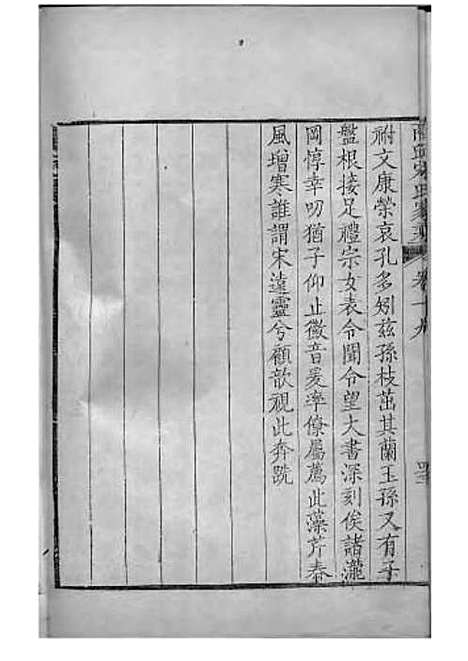 祔文康榮哀孔多矧茲孫枝茁其蘭玉孫又有子
盤根接足禮宗女表令聞令望大書深刻俟諸瀧
岡惇幸叨猶子仰止徽音爰率僚屬薦此藻芹春
風增寒誰謂宋遠靈兮顧歆視此奔跣